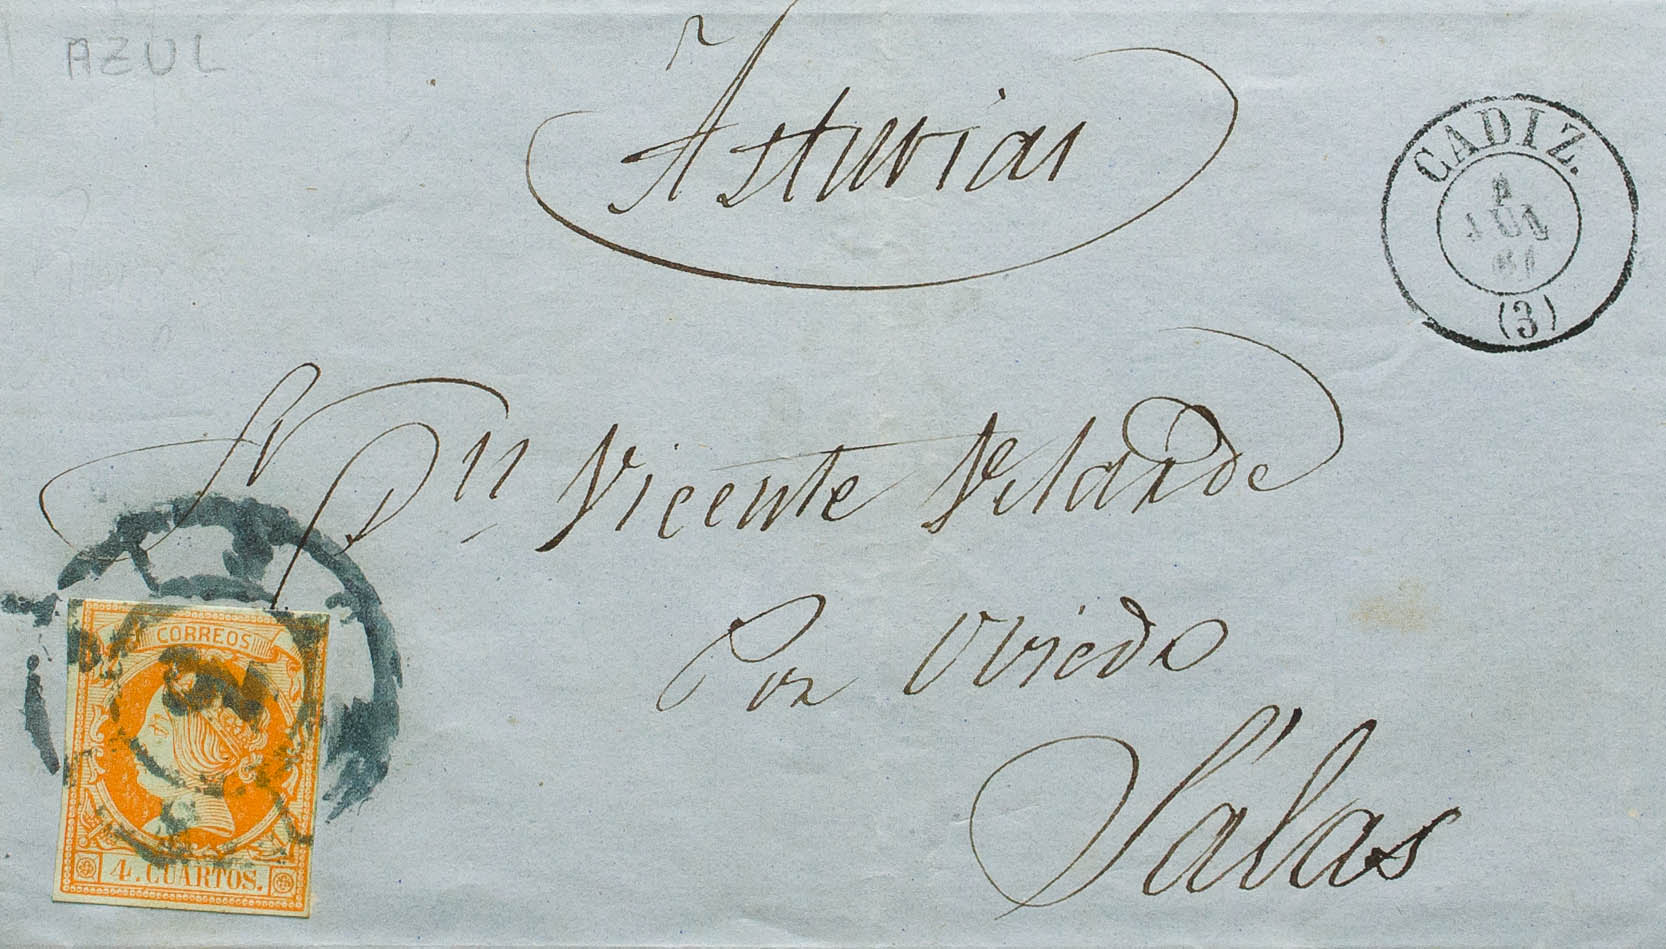 AZUL
Asturias
CADIZ.
JUL
(3)
Sr Dn Vicente Velarde
Por Oviedo
Sálas
CORREOS
4. CUARTOS.